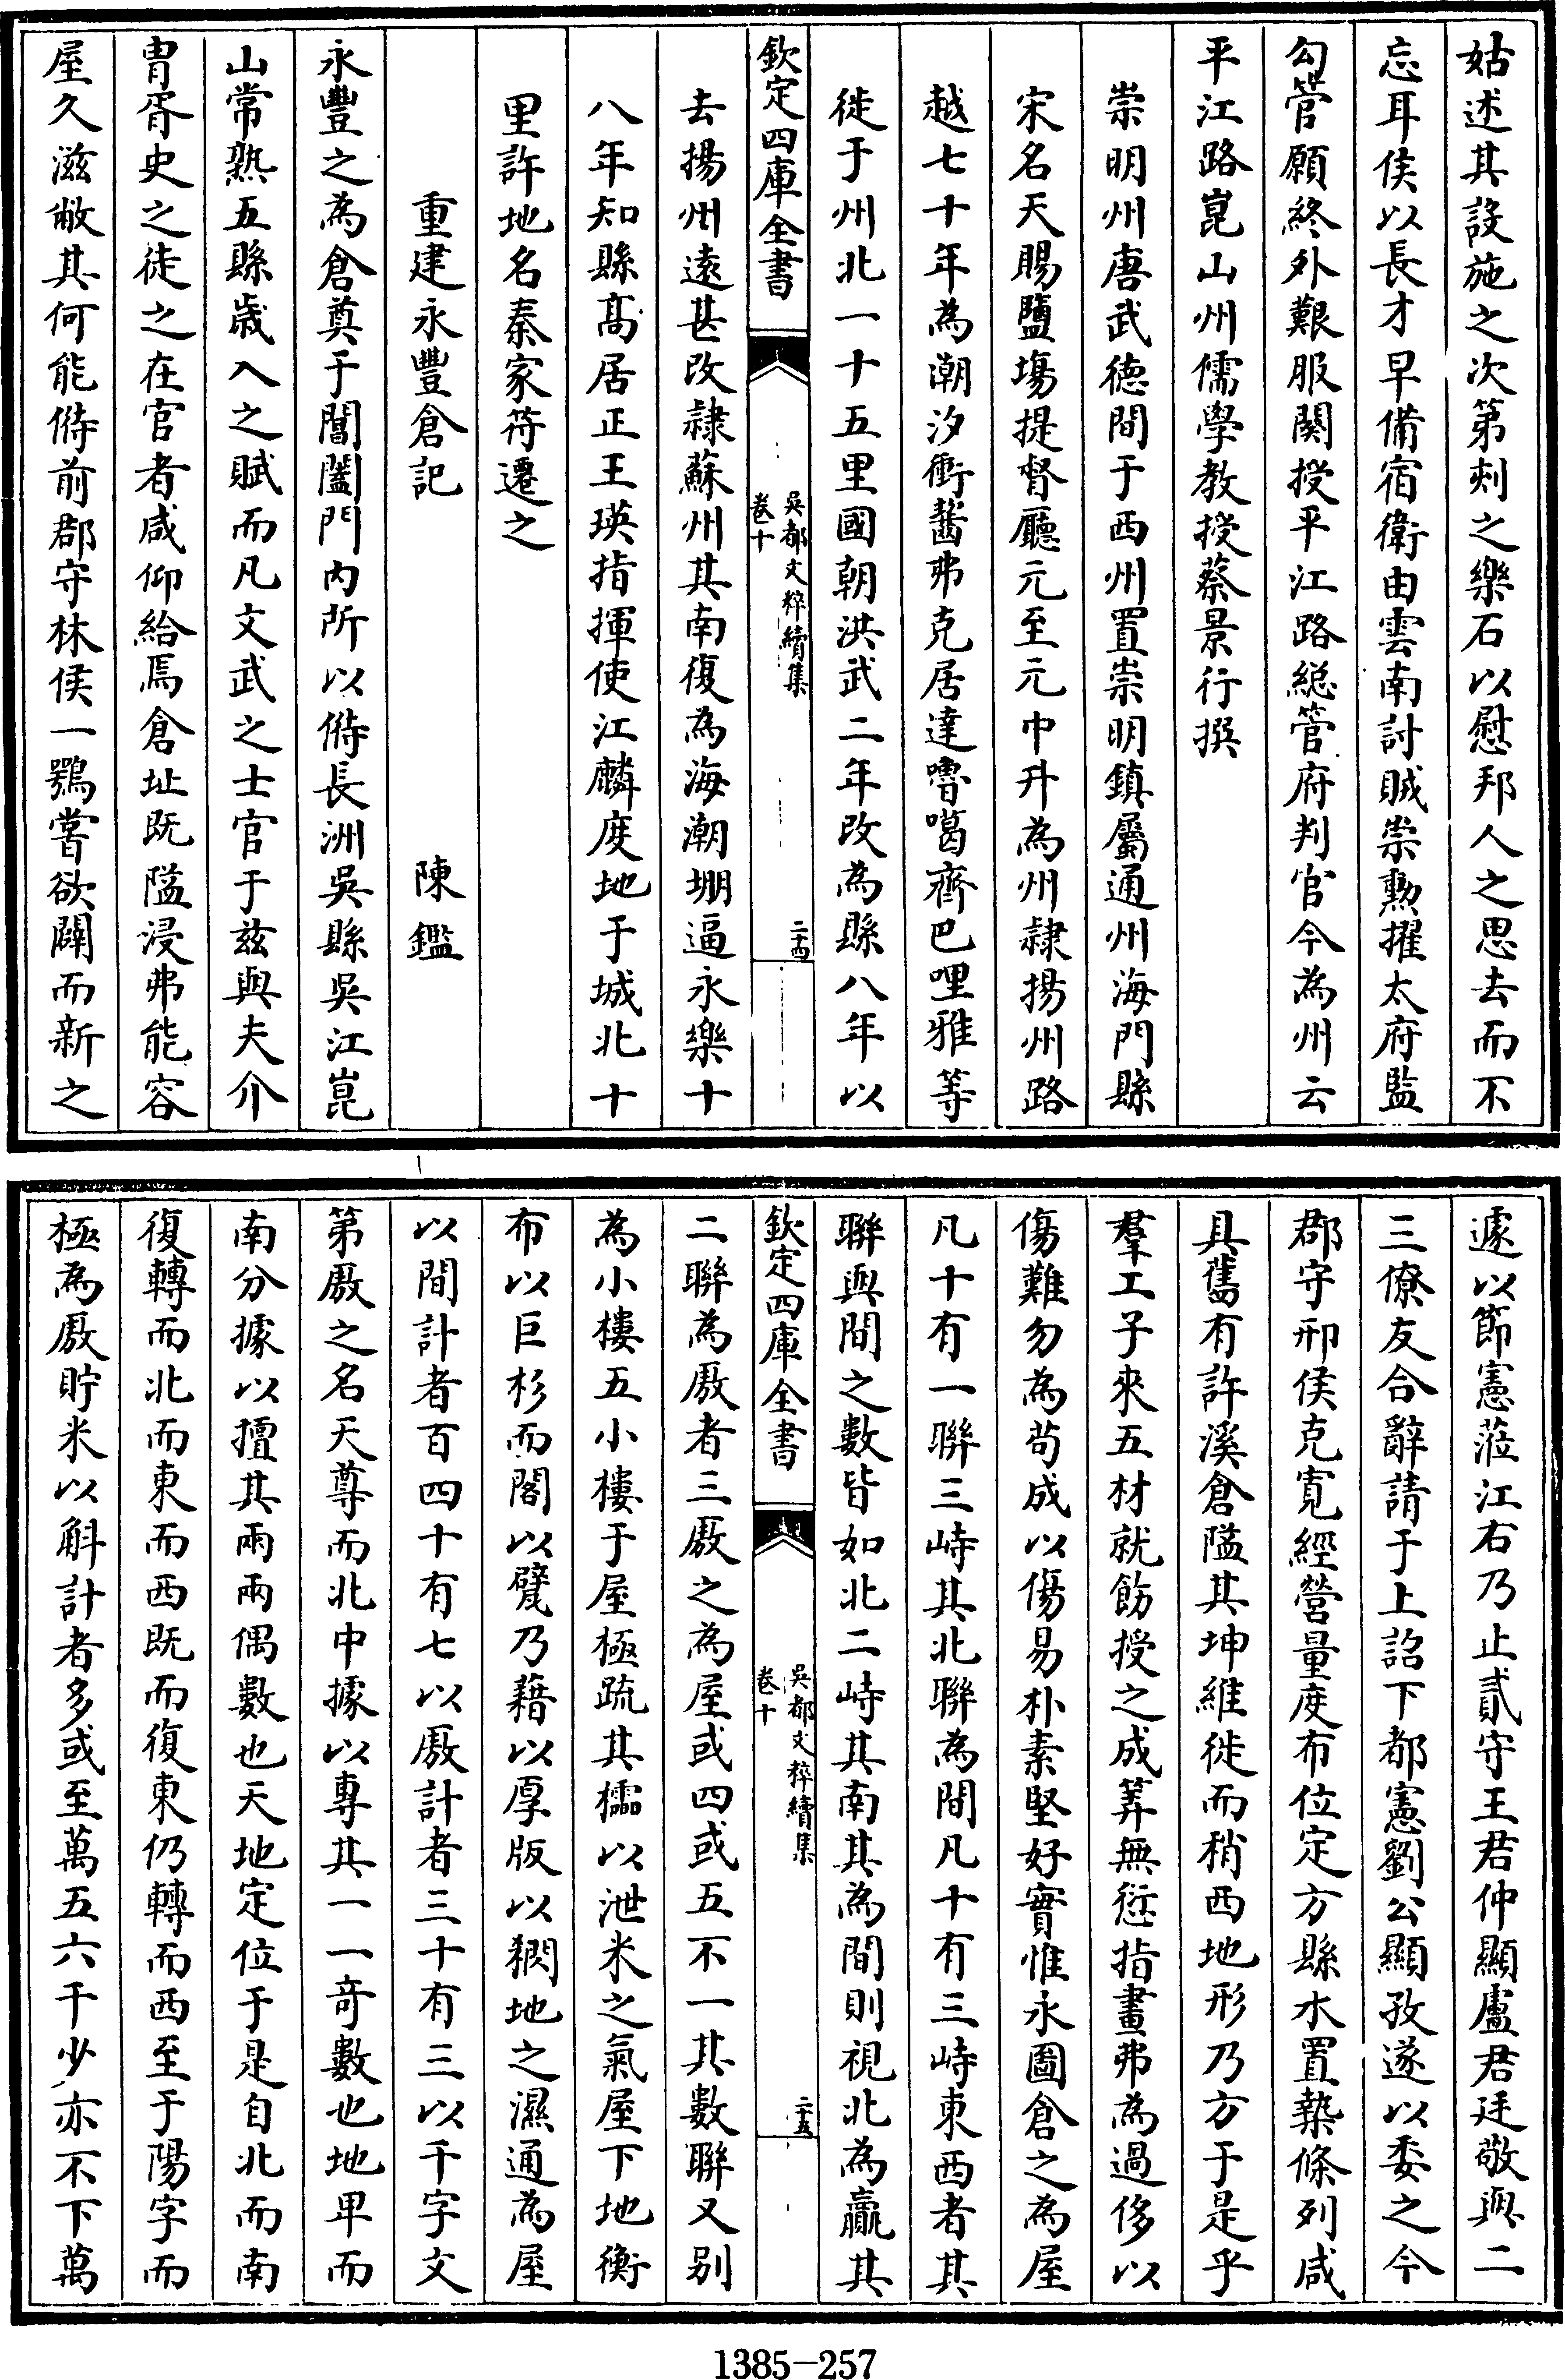 姑述其設施之次第刻之樂石以慰邦人之思去而不
忘耳侯以長才早備宿衛由雲南討賊崇勲擢太府監
勾管願終外艱服闋授平江路総管府判官今為州云
平江路崑山州儒學教授蔡景行撰
崇明州唐武徳間于西州置崇明鎮屬通州海門縣
宋名天賜鹽塲提督廳元至元中升為州隷揚州路
越七十年為潮汐衝齧弗克居達嚕噶齊巴哩雅等
徙于州北一十五里國朝洪武二年改為縣八年以
欽定四庫全書
吳都文粹續集
卷十
二十四
去揚州遠甚改隷蘇州其南復為海潮堋逼永樂十
八年知縣髙居正王瑛指揮使江麟度地于城北十
里許地名秦家符遷之
重建永豐倉記
陳鑑
永豐之為倉奠于閶闔門内所以偫長洲吳縣吳江崑
山常熟五縣歳入之賦而凡文武之士官于兹與夫介
胄胥史之徒之在官者咸仰給焉倉址既隘浸弗能容
屋久滋敝其何能偫前郡守林侯一鶚嘗欲闢而新之
遽以節憲蒞江右乃止貳守王君仲顯盧君廷敬與二
三僚友合辭請于上詔下都憲劉公顯孜遂以委之今
郡守邢侯克寛經營量度布位定方縣水置槷條列咸
具舊有許溪倉隘其坤維徙而稍西地形乃方于是乎
羣工子來五材就飭授之成筭無愆指畫弗為過侈以
傷難勿為苟成以傷易朴素堅好實惟永圖倉之為屋
凡十有一聯三峙其北聯為間凡十有三峙東西者其
聯與間之數皆如北二峙其南其為間則視北為贏其
欽定四庫全書
吳都文粹續集
卷十
二十五
二聯為厫者三厫之為屋或四或五不一其數聯又别
為小樓五小樓于屋極疏其櫺以泄米之氣屋下地衡
布以巨杉而閣以甓乃藉以厚版以䦨地之濕通為屋
以間計者百四十有七以厫計者三十有三以千字文
第厫之名天尊而北中據以專其一一竒數也地卑而
南分據以擅其兩兩偶數也天地定位于是自北而南
復轉而北而東而西既而復東仍轉而西至于陽字而
極為厫貯米以斛計者多或至萬五六千少亦不下萬
1385-257